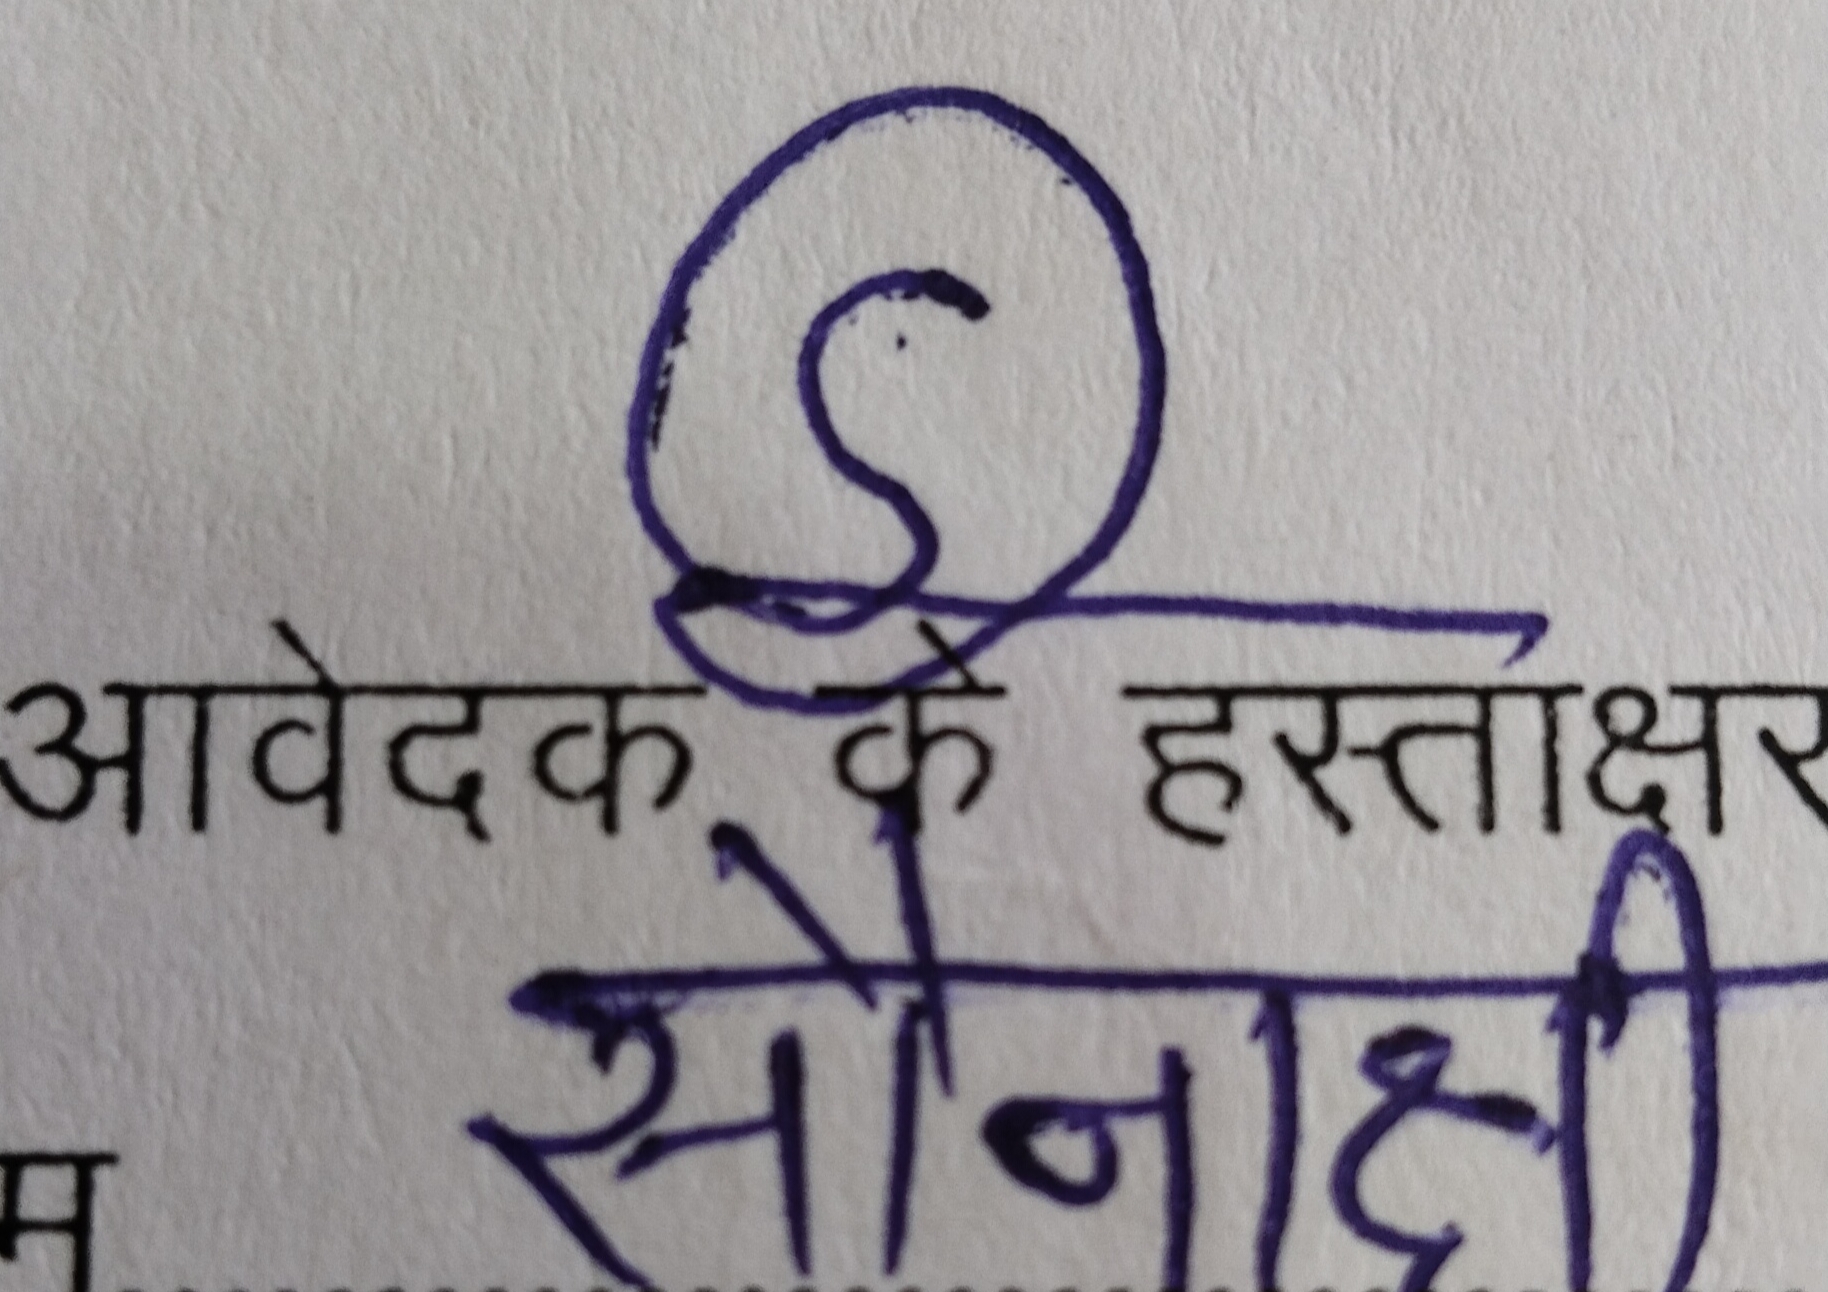 S
आवेदक के हस्ताक्षर
म
सोनाक्षी